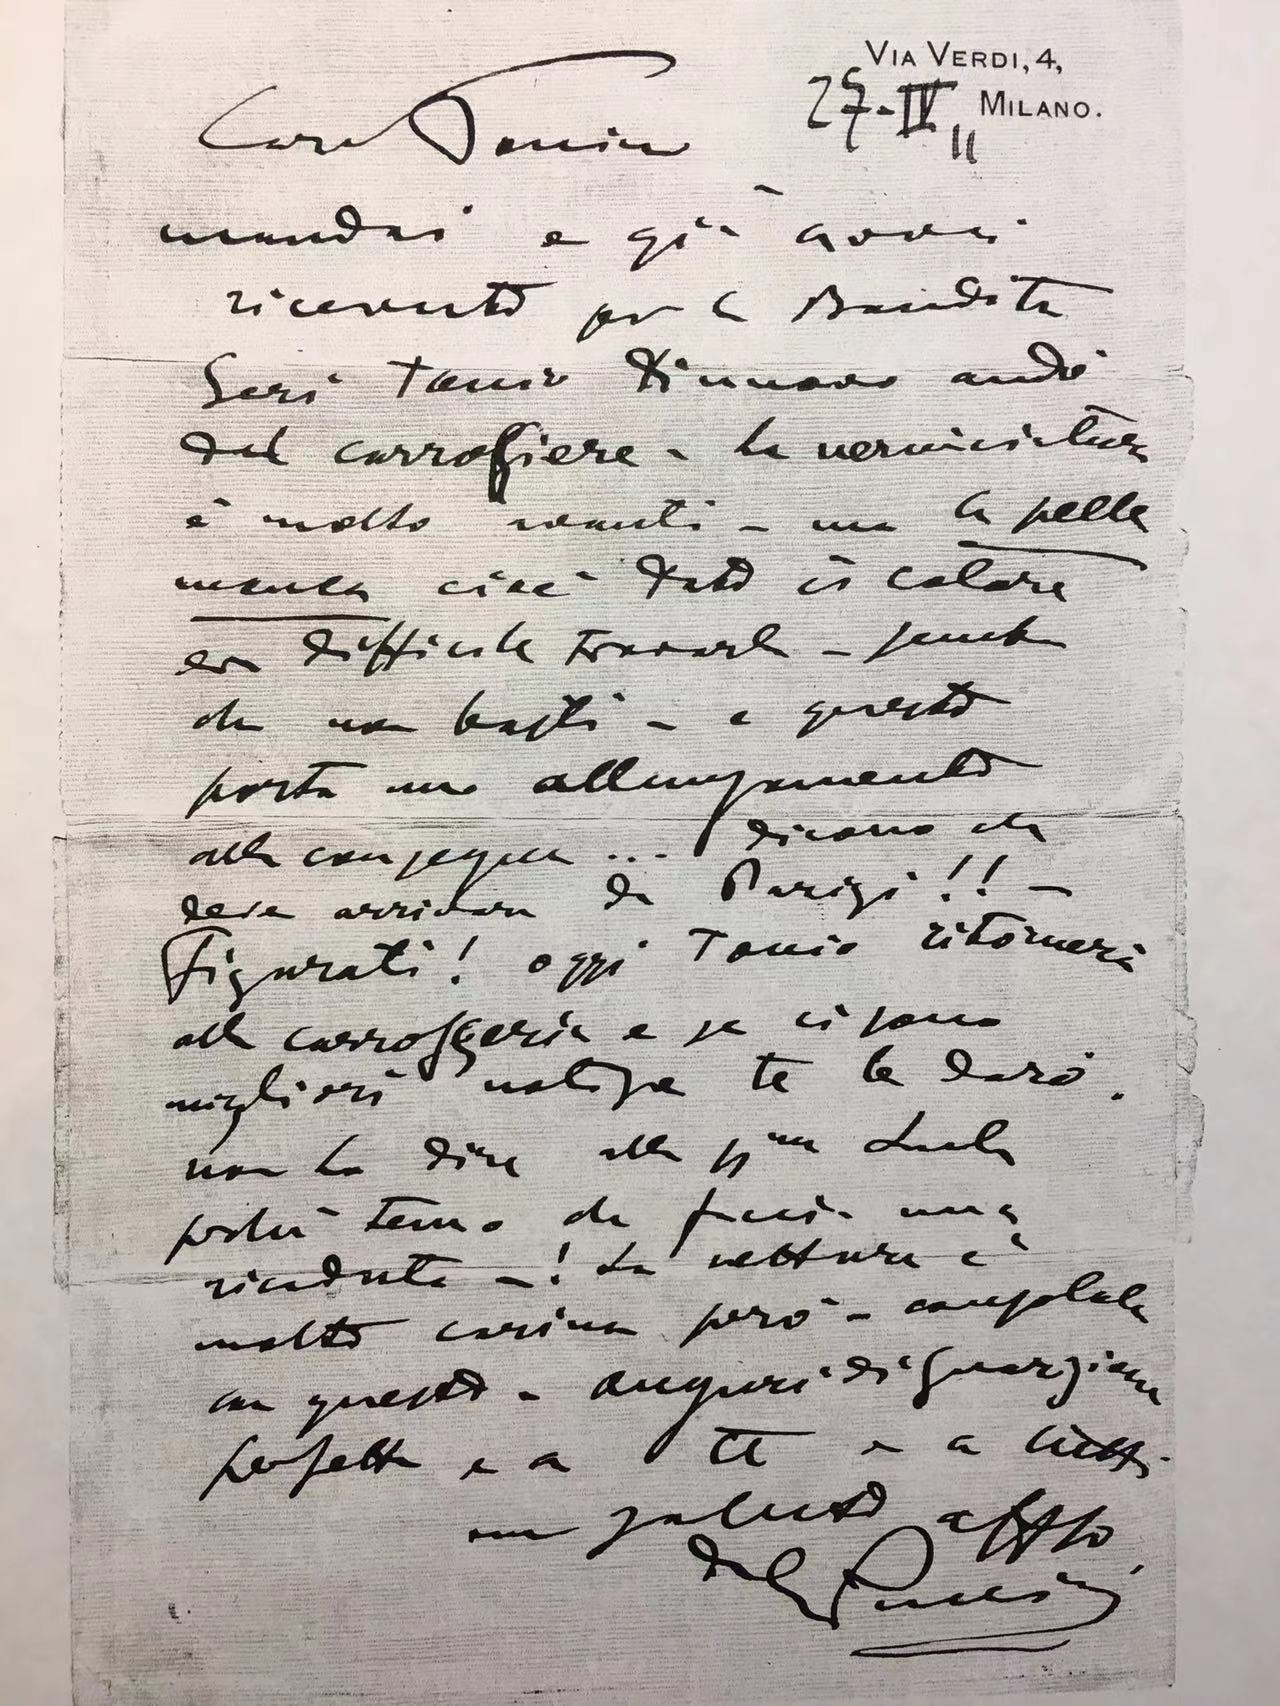 VIA VERDI, 4,
27-IV 11 MILANO.
Caro Tonino
mandai e già avrai
ricevuto per la Bandita
Ieri Tonio di nuovo andò
dal carrozziere - La verniciatura
è molto avanti - ma la pelle
manca cioè dato il colore
era difficile trovarla -
che non basti - e questo
porta un allungamento
alla consegna ... dicono che
deve arrivare da Parigi!! -
Figurati! oggi Tonio ritornerà
alla carrozzeria e se ci sono
migliori notizie te le darò.
non lo dire alla sigra
perché temo che faccia una
ricaduta -! La vettura è
molto carina però - consolala
con questo - auguri di guarigione
perfetta e a te e a tutti
un saluto affso
dal Puccini